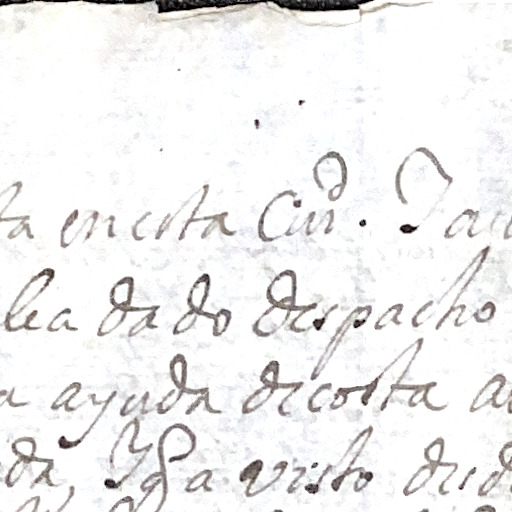 ta en esta Ciud. Y au
lea dado despacho
a ayuda de costa a
da, Y ga visto desd